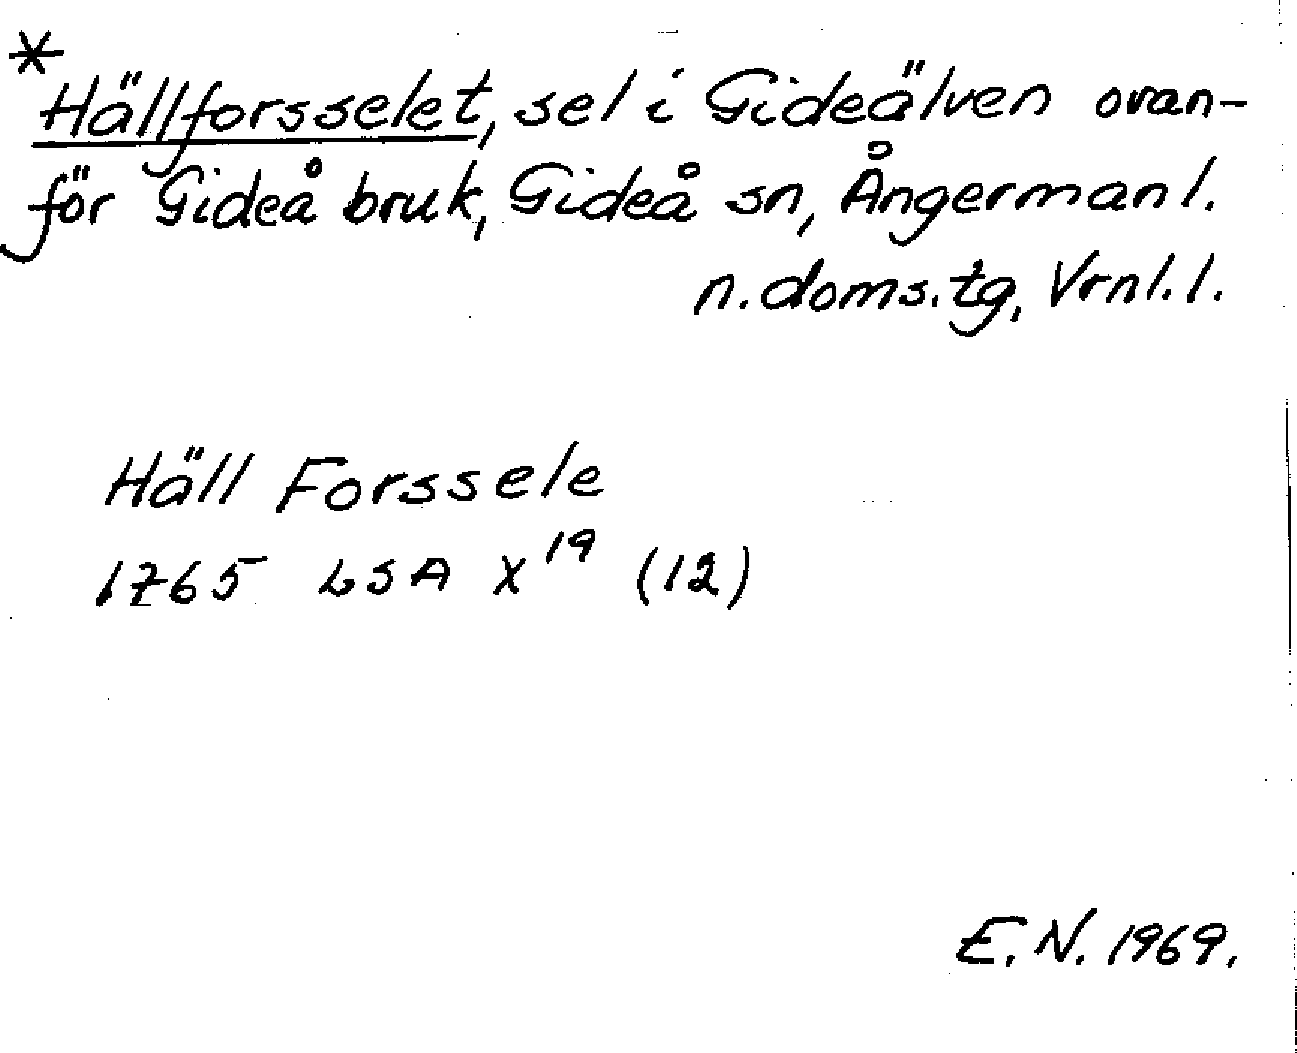 *Hällforsselet, sel i Gideälven ovan-
för Gideå bruk, Gideå sn, Ångermanl.
n. doms. tg, Vrnl. l.
Häll Forssele
1765 LSA X¹⁹ (12)
E. N. 1969.